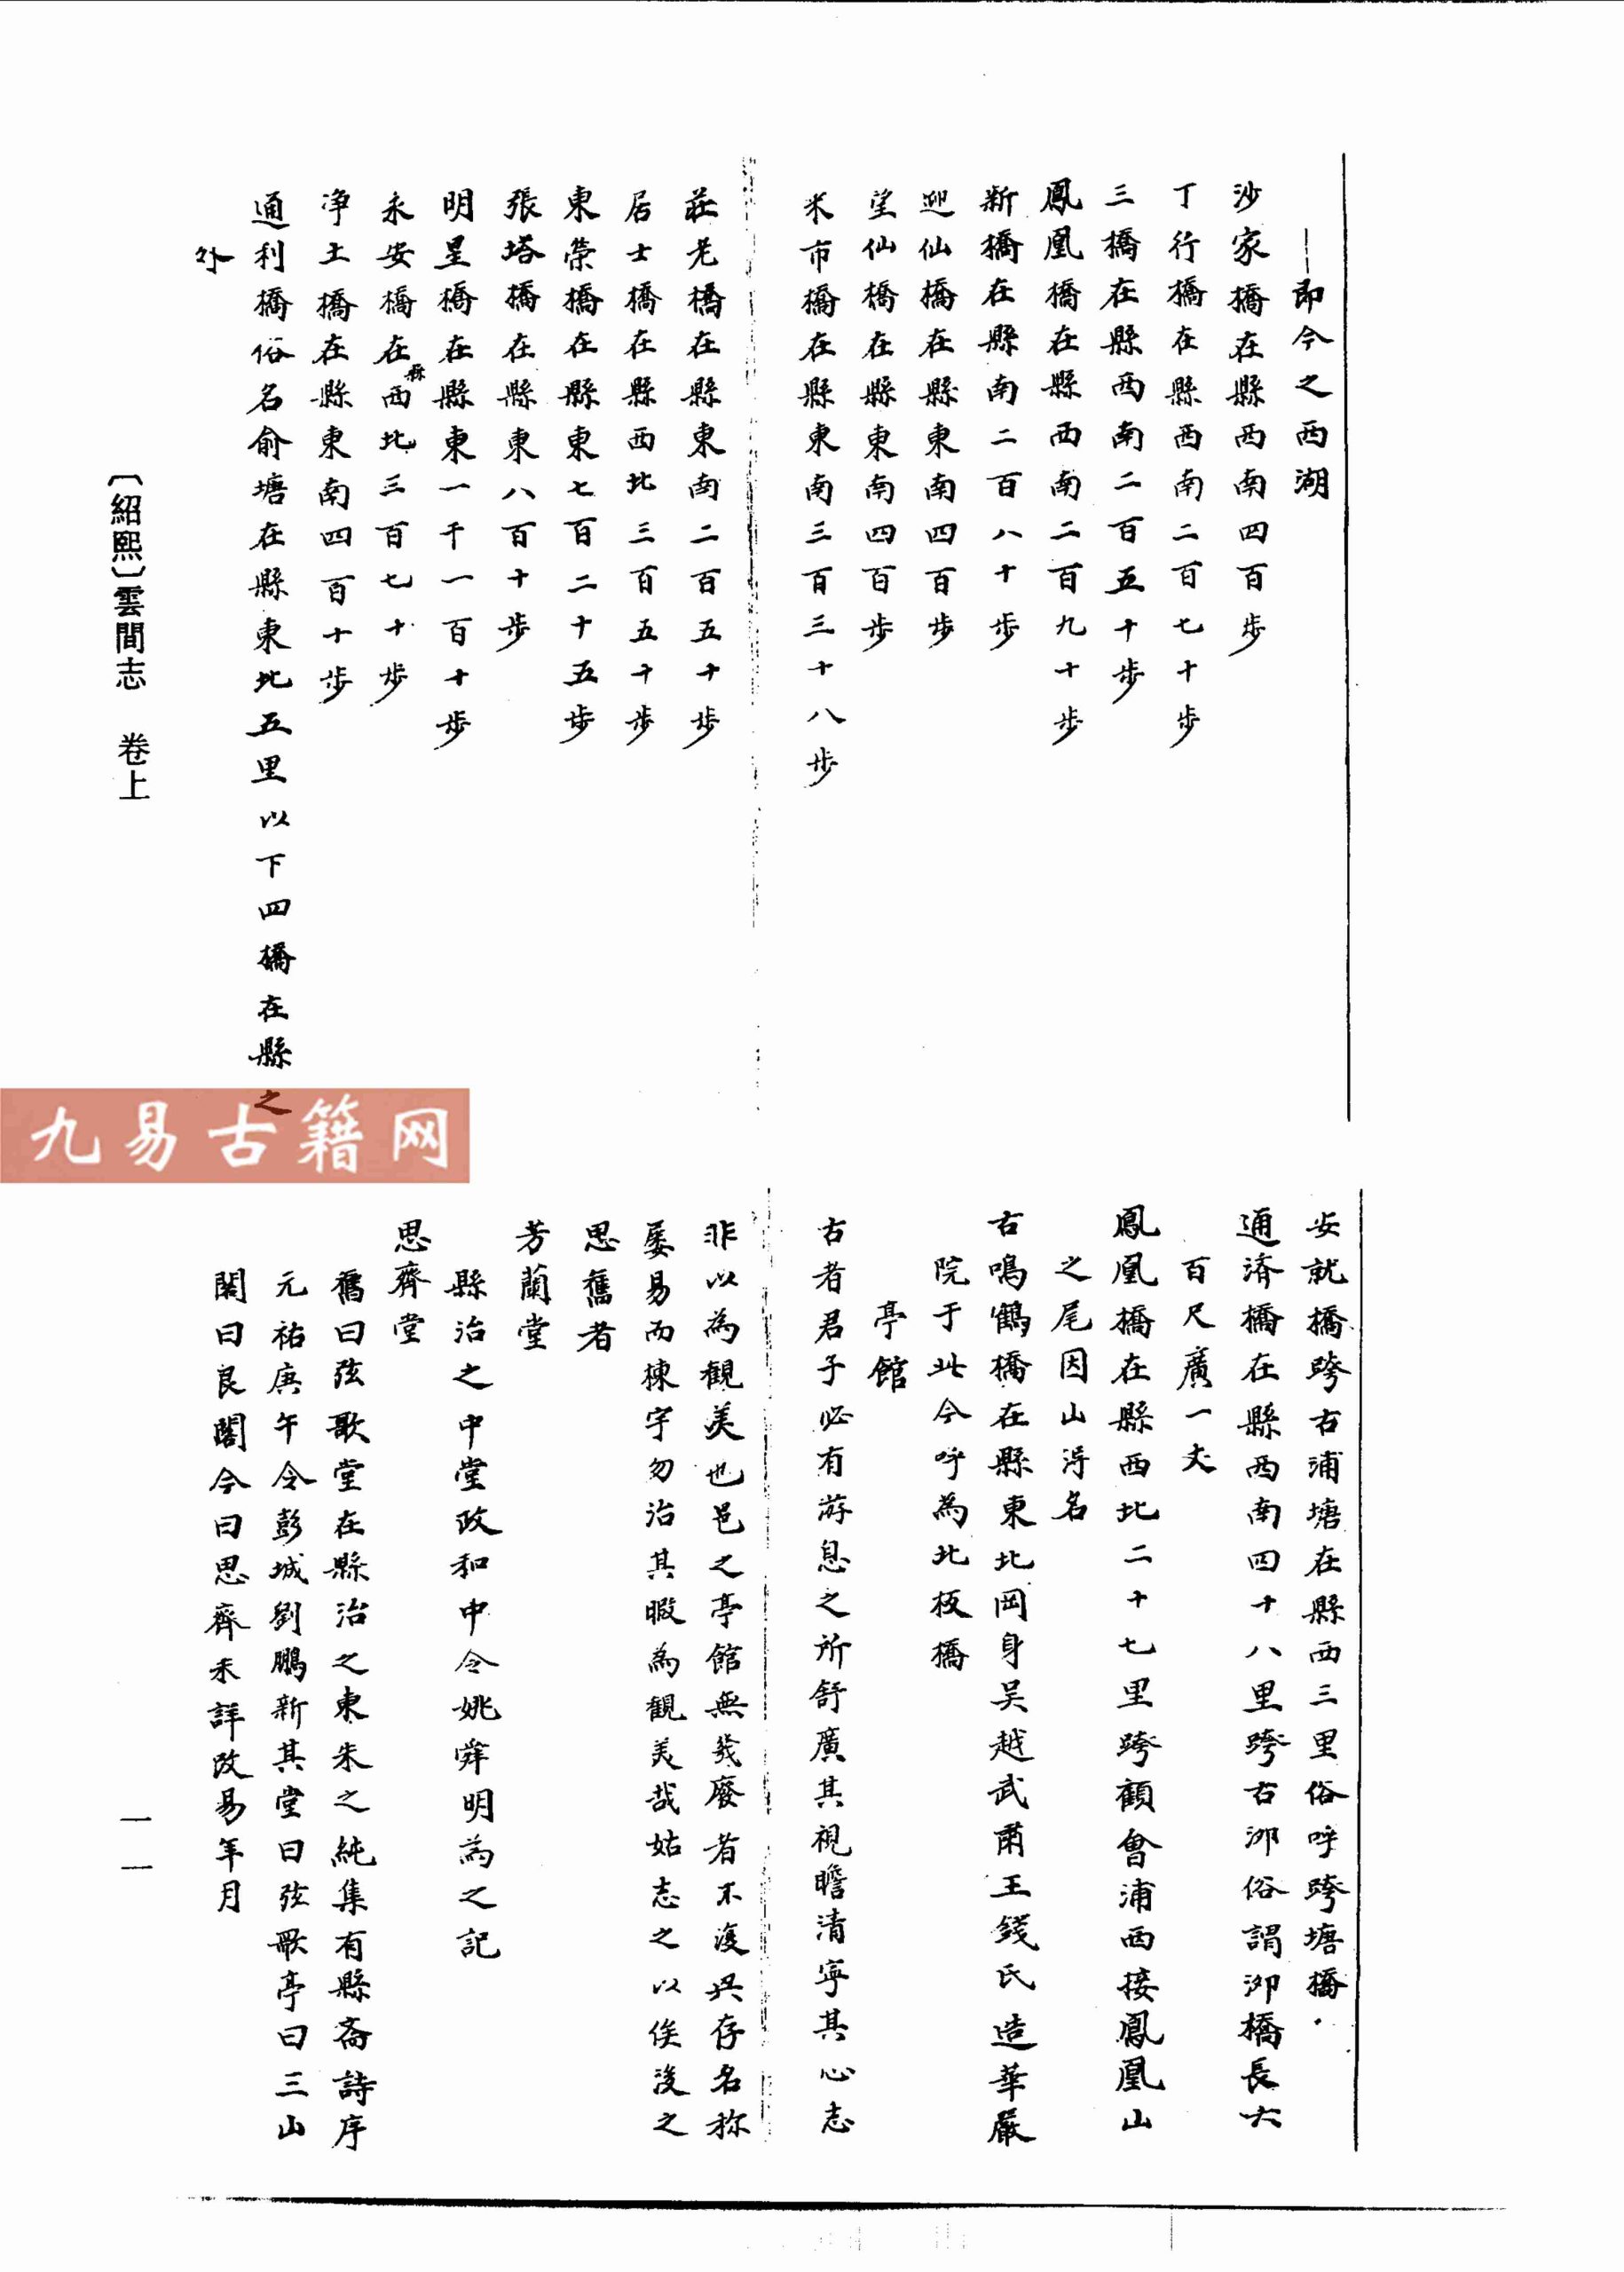 即今之西湖
沙家橋在縣西南四百步
丁行橋在縣西南二百七十步
三橋在縣西南二百五十步
鳳凰橋在縣西南二百九十步
新橋在縣南二百八十步
迎仙橋在縣東南四百步
望仙橋在縣東南四百步
米市橋在縣東南三百三十八步
莊老橋在縣東南二百五十步
居士橋在縣西北三百五十步
東榮橋在縣東七百二十五步
張塔橋在縣東八百十步
明星橋在縣東一千一百十步
永安橋在縣西北三百七十步
淨土橋在縣東南四百十步
通利橋俗名俞塘在縣東北五里以下四橋在縣之
外
安就橋跨古浦塘在縣西三里俗呼跨塘橋
通濟橋在縣西南四十八里跨古泖俗謂泖橋長六
百尺廣一丈
鳳凰橋在縣西北二十七里跨顧會浦西接鳳凰山
之尾因山得名
古鳴鶴橋在縣東北岡身吳越武肅王錢氏造華嚴
院于此今呼為北板橋
亭館
古者君子必有游息之所舒廣其視瞻清寧其心志
非以為觀美也邑之亭館無幾廢者不復興存名称
屡易而棟宇勿治其暇為觀美哉姑志之以俟後之
思舊者
芳蘭堂
縣治之中堂政和中令姚舜明為之記
思齊堂
舊曰弦歌堂在縣治之東朱之純集有縣齋詩序
元祐庚午令彭城劉鵬新其堂曰弦歌亭曰三山
閣曰良閣今曰思齊未詳改易年月
〔紹熙〕雲間志 卷上
一一
九易古籍网